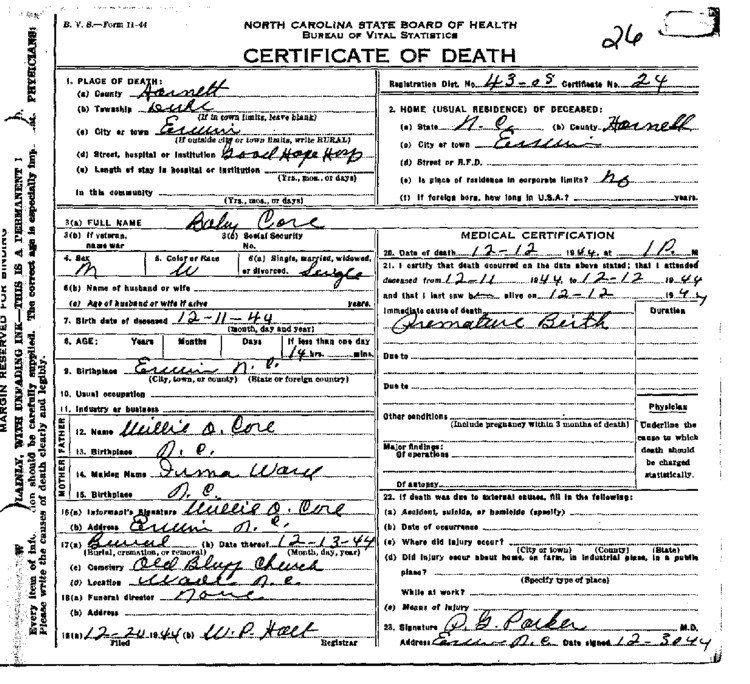 B. V. S.—Form 11-44
NORTH CAROLINA STATE BOARD OF HEALTH
BUREAU OF VITAL STATISTICS
26
CERTIFICATE OF DEATH
1. PLACE OF DEATH:
(a) County Harnett
(b) Township Duke
(If in town limits, leave blank)
(c) City or town Erwin
(If outside city or town limits, write RURAL)
(d) Street, hospital or institution Good Hope Hosp
(e) Length of stay in hospital or institution
(Yrs., mos., or days)
In this community
(Yrs., mos., or days)
Registration Dist. No. 43-05 Certificate No. 24
2. HOME (USUAL RESIDENCE) OF DECEASED:
(a) State N. C. (b) County Harnett
(c) City or town Erwin
(d) Street or R.F.D.
(e) Is place of residence in corporate limits? No
(f) If foreign born, how long in U.S.A.? years.
3(a) FULL NAME Baby Core
3(b) If veteran, name war
3(c) Social Security No.
4. Sex M
5. Color or Race W
6(a) Single, married, widowed, or divorced. Single
6(b) Name of husband or wife
(c) Age of husband or wife if alive years.
7. Birth date of deceased 12-11-44
(month, day and year)
8. AGE: Years Months Days If less than one day
14 hrs. mins.
9. Birthplace Erwin N. C.
(City, town, or county) (State or foreign country)
10. Usual occupation
11. Industry or business
FATHER
12. Name Willie O. Core
13. Birthplace N. C.
MOTHER
14. Maiden Name Irma Ward
15. Birthplace N. C.
16(a) Informant's Signature Willie O. Core
(b) Address Erwin N. C.
17(a) Burial (b) Date thereof 12-13-44
(Burial, cremation, or removal) (Month, day, year)
(c) Cemetery Old Bluff Church
(d) Location Wade N. C.
18(a) Funeral director None
(b) Address
19(a) 12-20 1944 (b) W. P. Holt
Filed Registrar
MEDICAL CERTIFICATION
20. Date of death 12-12 1944, at 1 P. M
21. I certify that death occurred on the date above stated; that I attended
deceased from 12-11 1944 to 12-12 1944
and that I last saw him alive on 12-12 1944
Immediate cause of death Duration
Premature Birth
Due to
Due to
Other conditions
(Include pregnancy within 3 months of death)
Major findings:
Of operations
Of autopsy
Physician
Underline the
cause to which
death should
be charged
statistically.
22. If death was due to external causes, fill in the following:
(a) Accident, suicide, or homicide (specify)
(b) Date of occurrence
(c) Where did injury occur?
(City or town) (County) (State)
(d) Did injury occur about home, on farm, in industrial place, in a public
place?
(Specify type of place)
While at work?
(e) Means of Injury
23. Signature P. G. Parker M.D.
Address Erwin N. C. Date signed 12-3044
MARGIN RESERVED FOR BINDING
W PLAINLY, WITH UNFADING INK—THIS IS A PERMANENT
Every item of info. ion should be carefully supplied. The correct age is especially imp. PHYSICIANS:
Please write the causes of death clearly and legibly.